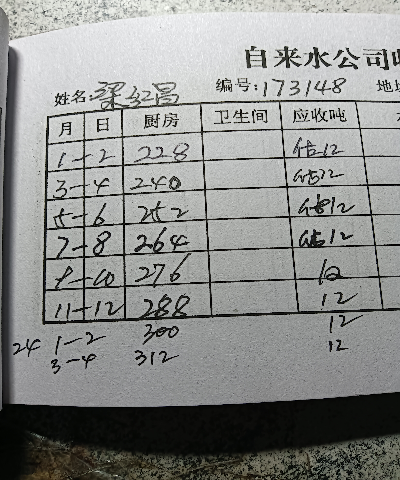 自来水公司收
姓名:梁红昌 编号:173148 地址
月 日 厨房 卫生间 应收吨
1-2 228 估12
3-4 240 估12
5-6 252 估12
7-8 264 估12
9-10 276 12
11-12 288 12
24 1-2 300 12
3-4 312 12